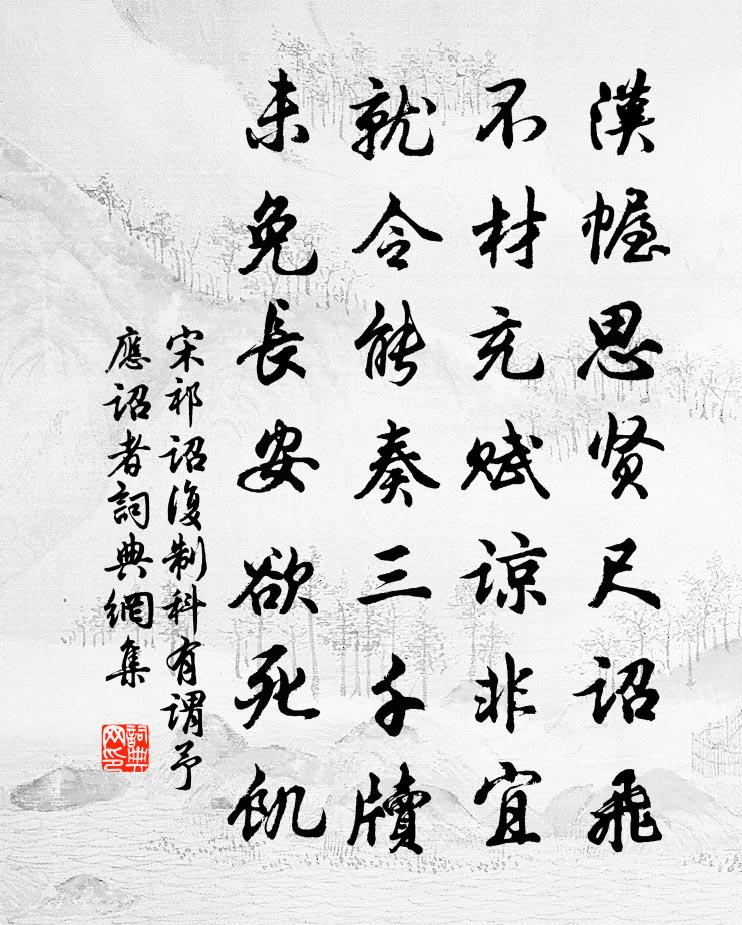 漢幄思贤尺诏飛
不材充赋谅非宜
就令能奏三千牘
未免長安欲死飢
宋祁诏復制科有谓予
應诏者詞典網集
詞典网印